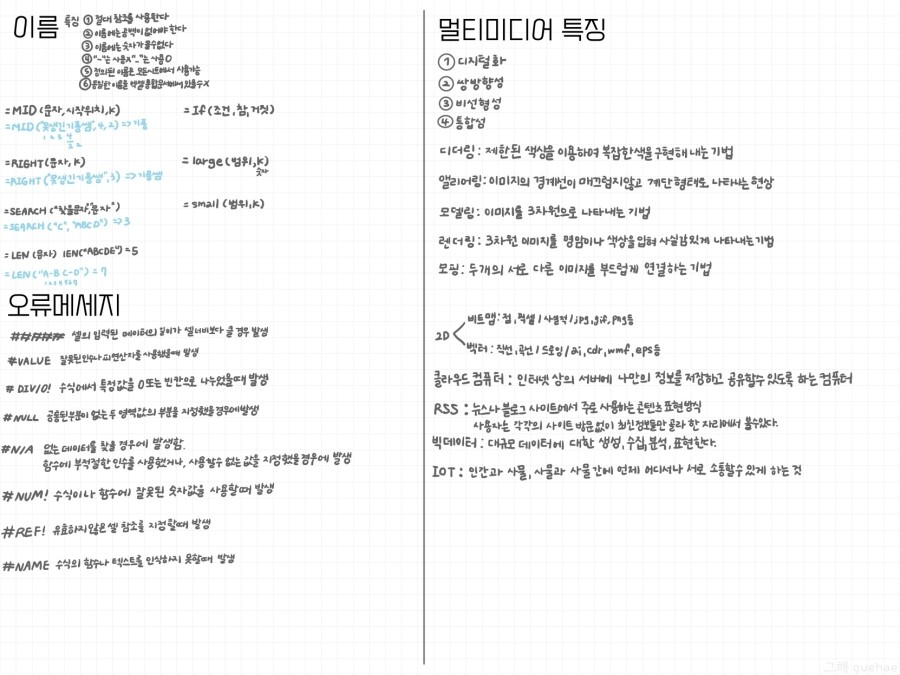 이름 특징 ① 절대 참조를 사용한다
② 이름에는 공백이 없어야 한다
③ 이름에는 숫자가 올수없다
④ "-"는 사용X "_"는 사용O
⑤ 정의된 이름은 모든시트에서 사용가능
⑥ 동일한 이름을 엑셀통합문서에서 있을수X
=MID(문자,시작위치,K)
=If(조건,참,거짓)
=MID("못생긴기름쌤",4,2) => 기름
1 2 3 4
1 2
=RIGHT(문자,K)
=large(범위,K)
숫자
=RIGHT("못생긴기름쌤",3) => 기름쌤
=SEARCH("찾을문자","문자")
=small(범위,K)
=SEARCH("C","ABCD") => 3
=LEN(문자) lEN("ABCDE")=5
=LEN("A-B C-D") = 7
1 2 3 4 5 6 7
오류메세지
####### 셀의 입력된 데이터의 길이가 셀 너비보다 클 경우 발생
#VALUE 잘못된인수나 피연산자를 사용했을때 발생
# DIV/0! 수식에서 특정값을 0또는 빈칸으로 나누었을때 발생
#NULL 공통된부분이 없는 두 영역값의 부분을 지정했을경우에발생
#N/A 없는 데이터를 찾을 경우에 발생함.
함수에 부적절한 인수를 사용했거나, 사용할수 없는 값을 지정했을경우에 발생
#NUM! 수식이나 함수에 잘못된 숫자값을 사용할때 발생
#REF! 유효하지않은셀 참조를 지정할때 발생
#NAME 수식의 함수나 텍스트를 인식하지 못할때 발생
멀티미디어 특징
① 디지털화
② 쌍방향성
③ 비선형성
④ 통합성
디더링: 제한된 색상을 이용하여 복잡한색을 구현해 내는 기법
앨리어링: 이미지의 경계선이 매끄럽지않고 계단형태로 나타나는 현상
모델링: 이미지를 3차원으로 나타내는 기법
렌더링: 3차원 이미지를 명암이나 색상을입혀 사실감있게 나타내는기법
모핑: 두개의 서로 다른 이미지를 부드럽게 연결하는 기법
비트맵: 점, 픽셀 / 사실적 / jpg, gif, png등
2D
벡터: 직선, 곡선 / 드로잉 / ai, cdr, wmf, eps등
클라우드 컴퓨터: 인터넷 상의 서버에 나만의 정보를 저장하고 공유할수있도록 하는 컴퓨터
RSS: 뉴스나 블로그 사이트에서 주로 사용하는 콘텐츠 표현방식
사용자는 각각의 사이트 방문 없이 최신정보들만 골라 한 자리에서 볼수있다.
빅데이터: 대규모 데이터에 대한 생성,수집,분석,표현한다.
IOT: 인간과 사물, 사물과 사물간에 언제 어디서나 서로 소통할수 있게 하는 것
그해 guehae